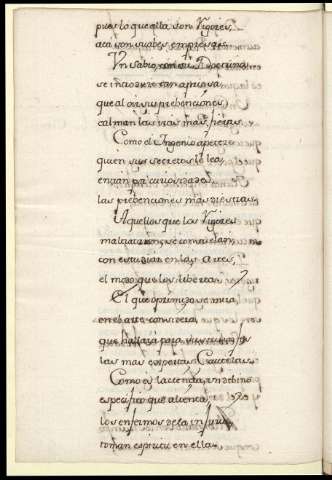 pues lo que alla son Vigores,
aca son suabes empresas.
Un Sabio, con su Doctrina
se introduce tan apriesa,
que al oir sus prebenciones,
calman las iras mas fieras.
Como el Ingenio apetece
quien sus secretos le lea,
en tan
las prebenciones mas diestras.
Aquellos que los Vigores
maltratan, se consuelan,
con estudiar en las Artes,
el modo que los libertan.
El que oprimido se mira,
en el arte considera,
que hallará para
las mas expertas Cautelas.
Como es la ciencia, un debino
especifico que alienta,
los enfermos de la injuria
toman espiritu en ella.